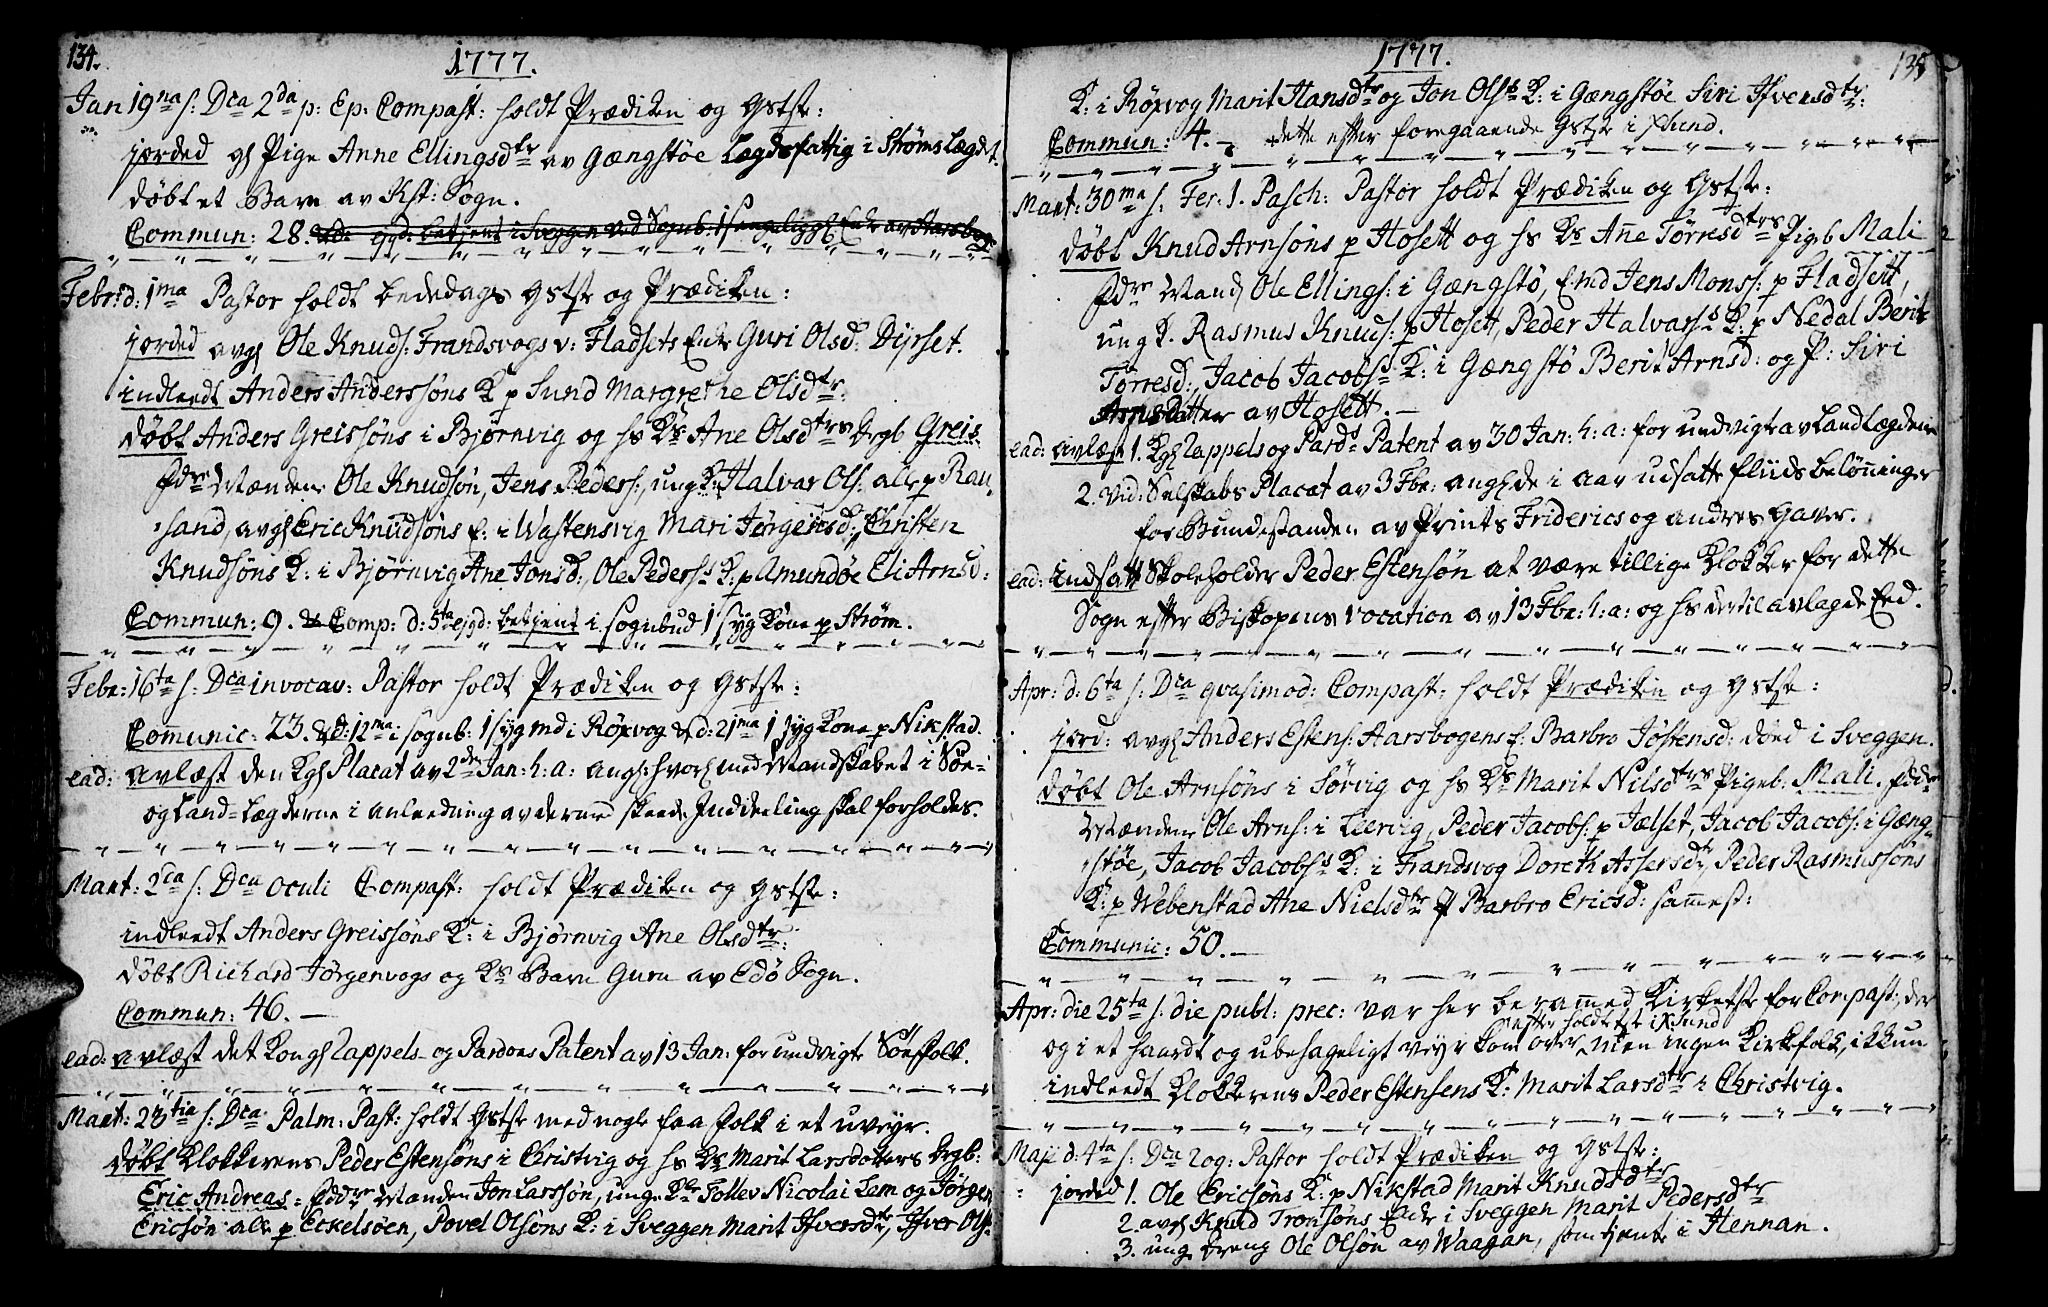 134.
1777.
Jan 19na s: Dca 2da p: Ep: Compast: holdt Prædiken og Gstste:
jorded gl Pige Anne Ellingsdtr av Gængstøe Lagdsfattig i Strøms Lægdet.
døbt et Barn av Kst: Sogn.
Commun: 28.
Febr: d: 1ma Pastor holdt bededags Gstste og Prædiken:
jorded avgl Ole Knuds: Frandsvogs v: Fladsets Enke Guri Olsd: Dyrset.
indleedt Anders Anderssøns K p Sund Margrethe Olsdtr:
døbt Anders Greissøns i Bjørnvig og hs Ks Ane Olsdtrs Drgb Greis.
Fdre Mændene Ole Knudsøn, Jens Peders:, ung K: Halvar Ols: alle p Rau,
sand, avgl Eric Knudsøns E: i Wastensvig Mari Jørgensd:, Christen
Knudsøns K: i Bjørnvig Ane Jonsd:, Ole Peders: K: p Amundøe Eli Arnsd:
Commun: 9. Comp: d: 5te ejgd: betjent i sognbud 1 syg Kone p Strøm.
Febr: 16ta s: Dca invocav: Pastor holdt Prædiken og Gstste:
Comunic: 23. d: 12ma i sognb: 1 syg md i Røxvog & d: 21ma 1 syg Kone p Nikstad.
ead: avlæst den Kgl Placat av 2den Jan: h: a: angl: hvorl med Mandskabet i Søe-
og Land-Lægderne i anleedning av derved skeede Inddeeling skal forholdes.
Mart: 2da s: Dca Oculi Compast: holdt Prædiken og Gstste:
indleedt Anders Greissøns K: i Bjørnvig Ane Olsdtr:
døbt Richard Jørgenvogs og Ks Barn Guru av Edø Sogn.
Commun: 46.
ead: avlæst det Kongl Lappels- og Pardons Patent av 13 Jan: for undvigte Søefolk.
Mart: 23tia s: Dca Palm: Past: holdt Gstste med nogle faa folk i et uveyr.
døbt Klokkerens Peder Estensøns i Christvig og hs Ks Marit Larsdotters Drgb:
Eric Andreas: Fddre Manden Jon Larssøn, ung Kle Tollev Nicolai Lem og Jørgen
Ericsøn alle p Eckelsøen, Povel Olsøns K: i Sveggen Marit Ifversdtr, Ifver Ols:
1777.
135
K: i Røxvog Marit Hansdtr og Jon Olss K: i Gængstøe Siri Ifversdtr:
Commun: 4. dette efter foregaaende Gstste i xSund.
Mart: 30ma s: Fer: 1. Pasch: Pastor holdt Prædiken og Gstste:
døbt Knud Arnsøns p Hosett og hs Ks Anne Torresdtrs Pigeb Mali
Fdre Mand Ole Ellings: i Gængstø, Emd Jens Monss: p Fladsett,
ung K. Rasmus Knuds: p Hosett, Peder Halvarss K: p Nedal Berit
Torresd:, Jacob Jacobss K: i Gængstø Berit Arnsd: og P: Siri
Arnsdatter av Hosett.
ead: avlæst 1. Kgl Lappels og Pards Patent av 30 Jan: h: a: for undvigte av Landlægderne
2. Vid: Selskabs Placat av 3 Fbr: angl de i aar udsatte fliids belønninger
for Bundestanden av Prints Friderics og andres Gaver.
ead: Indsatt Skoleholder Peder Estensøn at være tillige Klokker for dette
Sogn efter Biskopens vocation av 13 Fbr: h: a: og hs dertil avlagde Eed.
Apr: d: 6ta s: Dca qvasimod: Compast: holdt Prædiken og Gstste:
jord: avgl Anders Estens: Aarsbogens E: Barbro Jøstensd: døed i Sveggen.
døbt Ole Arnsøns i Sørvig og hs Ks Marit Nilsdtrs Pigeb: Mali. Fddre
Mændene Ole Arns: i Leervig, Peder Jacobs: p Jælset, Jacob Jacobs: i Gæng-
støe, Jacob Jacobss K: i Frandsvog Doreth Assersdtr, Peder Rasmussøns
K: p Webenstad Ane Nielsdtr P Barbro Ericsd: sammest:
Communic: 50.
Apr: die 25ta s: die publ: prec: var her berammed Kirketste for Compast:, der
efter holdt tste i xSund
og i et haardt og ubehageligt veyr kom over, men ingen Kirkefolk, ikkun
indleedt Klokkerens Peder Estensens K: Marit Larsdtr i Christvig.
Maji d: 4ta s: Dca Rog: Pastor holdt Prædiken og Gstste:
jorded 1. Ole Ericsøns K: p Nikstad Marit Knudsdtr
2 avgl Knud Tronsøns Enke i Sveggen Marit Pedersdtr
3. ung Dreng Ole Olsøn av Waagan, som tjente i Hennan.